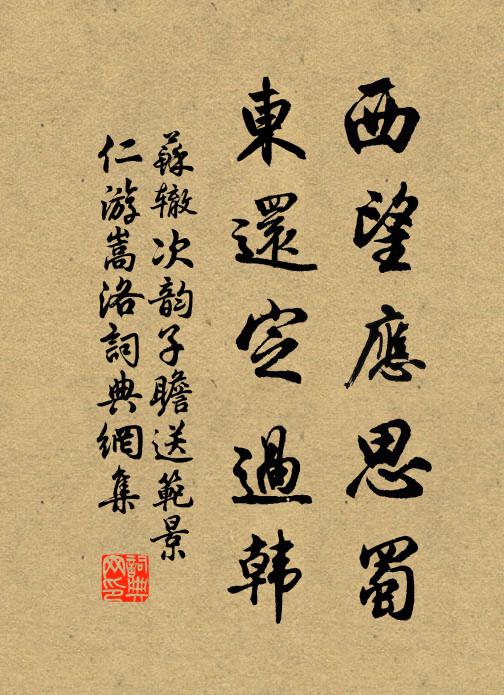 西望應思蜀
東還定過韓
蘇轍次韵子瞻送範景
仁游嵩洛詞典網集
詞典
网印